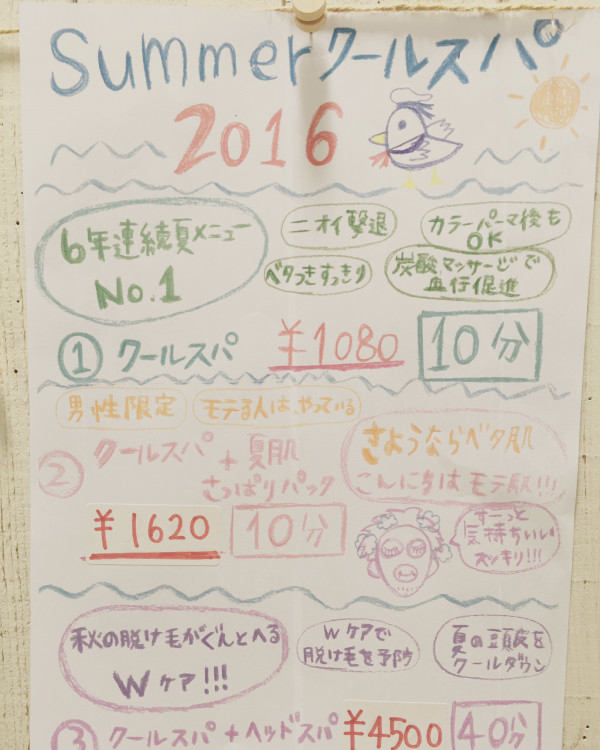 Summerクールスパ
2016
6年連続夏メニュー
No.1
ニオイ撃退
カラーパーマ後も
OK
ベタつきすっきり
炭酸マッサージで
血行促進
① クールスパ ¥1080 10分
男性限定
モテる人は、やっている
② クールスパ + 夏肌
さっぱりパック
さようならベタ肌
こんにちはモテ肌!!!
¥1620 10分
すーっと
気持ちいい
スッキリ!!!
秋の脱け毛がぐんとへる
Wケア!!!
Wケアで
脱け毛を予防
夏の頭皮を
クールダウン
③ クールスパ+ヘッドスパ ¥4500 40分